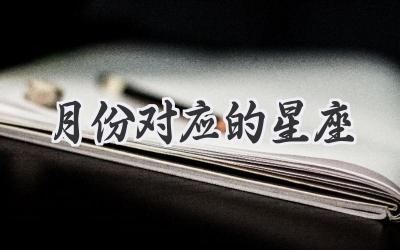 月份对应的星座